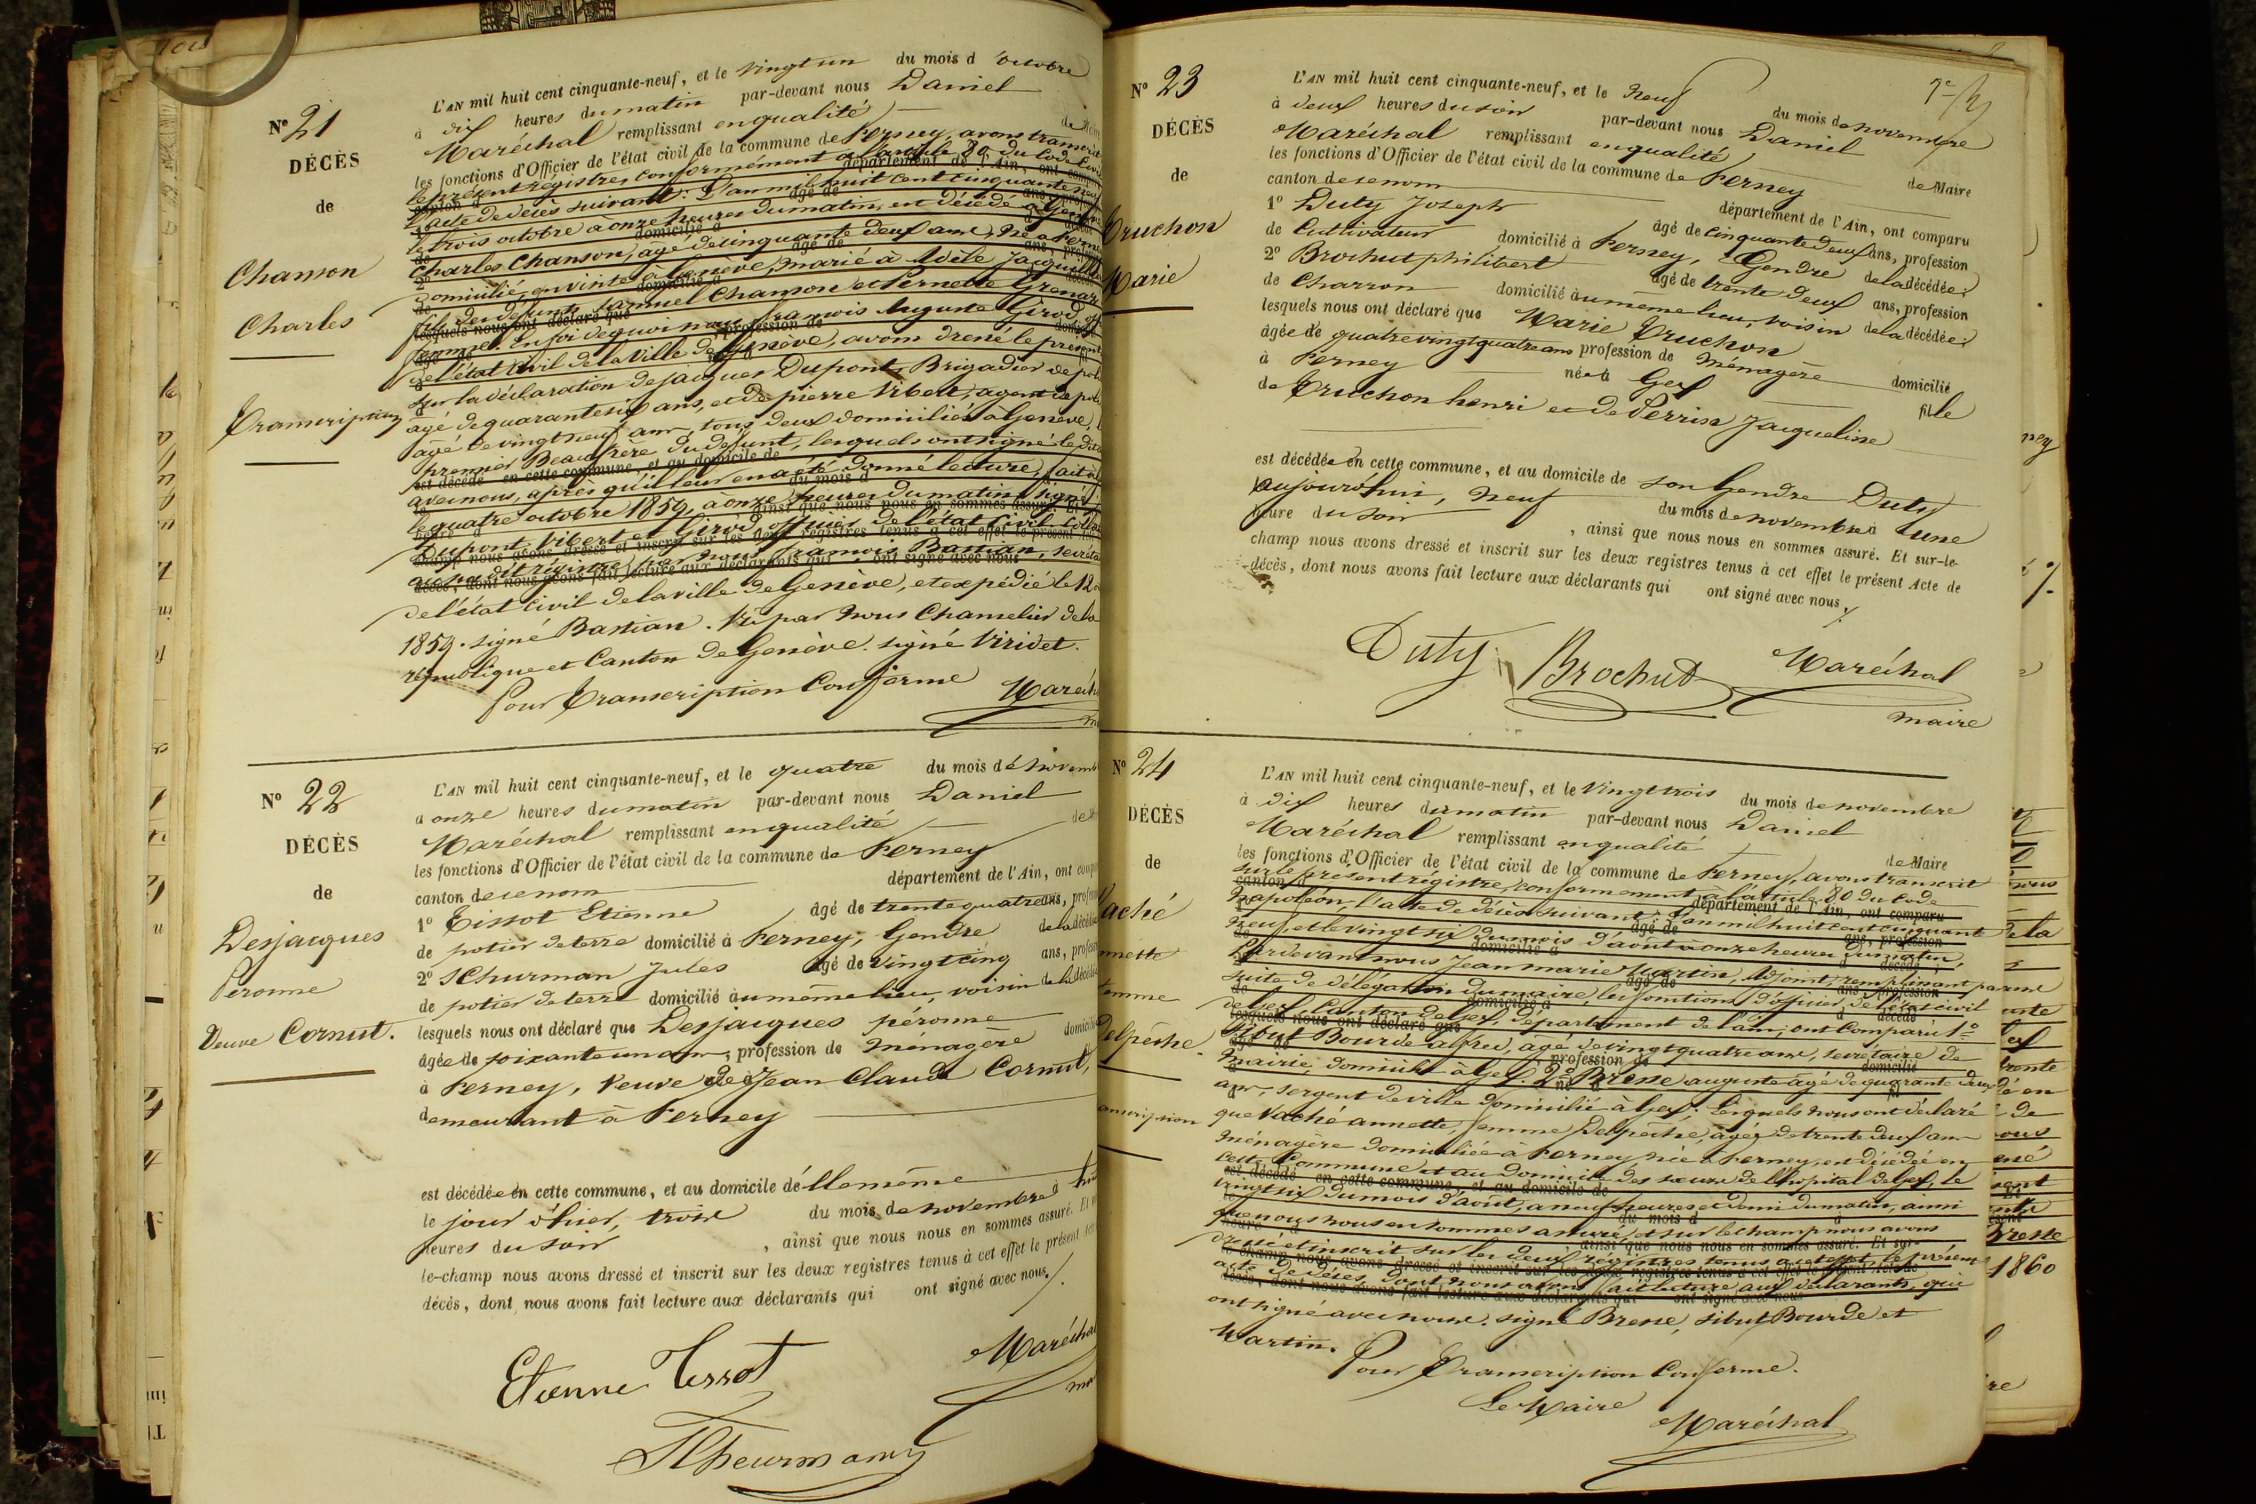 Nº 21
DÉCÈS
de
Chanson
Charles
Transcription
L'AN mil huit cent cinquante-neuf, et le vingt un du mois d'octobre
à dix heures du matin par-devant nous Daniel
Maréchal remplissant en qualité de Maire
les fonctions d'Officier de l'état civil de la commune de Ferney, avons transcrit
le présent régistre, conformément à l'article 80 du Code Civil
l'acte de décès suivant: L'an mil huit cent cinquante neuf
le trois octobre à onze heures du matin, est décédé à Genève
Charles Chanson, âgé de cinquante deux ans, né à Ferney
domicilié, en visite à Genève, marié à Adèle Jacquill
fils des défunts Samuel Chanson et Pernette Grenard
femme. En foi de quoi nous François Auguste Girod, off
de l'état civil de la Ville de Genève, avons dressé le présent
sur la déclaration de jacques Dupont, Brigadier de pol
âgé de quarante six ans, et de pierre Vibert, agent de pol
âgé de vingt neuf ans, tous deux domiciliés à Genève,
premier Beau frère du défunt, lesquels ont signé le dit
avec nous, après qu'il leur en a été donné lecture, fait à
le quatre octobre 1859, à onze heures du matin signé
Dupont, Vibert et Girod, officier de l'état Civil. Coll
au susdit régistre par nous François Bastian, secréta
de l'état civil de la ville de Genève, et expédié le 12
1859. signé Bastian. Vu par nous Chancelier de la
république et Canton de Genève. signé Viridet.
Pour Transcription Conforme Maréch
Nº 22
DÉCÈS
de
Desjacques
Péronne
Veuve Cornut.
L'AN mil huit cent cinquante-neuf, et le quatre du mois de Novemb
à onze heures du matin par-devant nous Daniel
Maréchal remplissant en qualité de
les fonctions d'Officier de l'état civil de la commune de Ferney
canton de ce nom département de l'Ain, ont comp
1º Tissot Etienne âgé de trente quatre ans, profess
de potier de terre domicilié à Ferney, Gendre de la décédée
2º Schurman Jules âgé de vingt cinq ans, profess
de potier de terre domicilié au même lieu, voisin de la décédée
lesquels nous ont déclaré que Desjacques péronne
âgée de soixante un ans, profession de ménagère domicili
à Ferney, veuve de Jean Claude Cornut,
demeurant à Ferney
est décédée en cette commune, et au domicile d'éllemême
le jour d'hier, trois du mois de novembre à huit
heures du soir, ainsi que nous nous en sommes assuré. Et
le-champ nous avons dressé et inscrit sur les deux registres tenus à cet effet le présent
décès, dont nous avons fait lecture aux déclarants qui ont signé avec nous.
Etienne Tissot
Maréchal
Scheurmann
Nº 23
DÉCÈS
de
Truchon
Marie
L'AN mil huit cent cinquante-neuf, et le neuf du mois de novembre
à deux heures du soir par-devant nous Daniel
Maréchal remplissant en qualité de Maire
les fonctions d'Officier de l'état civil de la commune de Ferney
canton de ce nom département de l'Ain, ont comparu
1º Duty Joseph âgé de cinquante deux ans, profession
de Cultivateur domicilié à Ferney, Gendre de la décédée;
2º Brochut philibert âgé de trente deux ans, profession
de Charron domicilié au même lieu, voisin de la décédée;
lesquels nous ont déclaré que Marie Truchon
âgée de quatre vingt quatre ans profession de Ménagère domicilié
à Ferney née à Gex fille
de Truchon henri et de Perrin Jacqueline
est décédée en cette commune, et au domicile de son Gendre Duty
aujourd'hui, neuf du mois de novembre à une
heure du soir, ainsi que nous nous en sommes assuré. Et sur-le-
champ nous avons dressé et inscrit sur les deux registres tenus à cet effet le présent Acte de
décès, dont nous avons fait lecture aux déclarants qui ont signé avec nous.
Duty Brochut Maréchal
maire
Nº 24
DÉCÈS
de
aché
nnette
femme
Delpêche.
anscription
L'AN mil huit cent cinquante-neuf, et le vingt trois du mois de novembre
à dix heures du matin par-devant nous Daniel
Maréchal remplissant en qualité de Maire
les fonctions d'Officier de l'état civil de la commune de Ferney, avons transcrit
sur le présent régistre, conformément à l'article 80 du Code
Napoléon, l'acte de décès suivant: L'an mil huit cent cinquante
neuf, et le vingt six du mois d'août à onze heures du matin,
Pardevant nous Jean marie Martin, Adjoint, remplissant par une
suite de délégation du maire, les fonctions d'officier de l'état civil
de Gex, Canton de Gex, département de l'ain, ont comparu 1º
Sibut Bourde alfred, âgé de vingt quatre ans, secrétaire de
mairie, domicilié à Gex. 2º Bresse auguste âgé de quarante deux
ans, sergent de ville domicilié à Gex; Lesquels nous ont déclaré
que Vaché annette, femme Delpêche, âgée de trente deux ans
ménagère domiciliée à Ferney, née à Ferney, est décédée en
cette Commune et au domicile des sœurs de l'hopital de Gex, le
vingt six du mois d'août, à neuf heures et demi du matin, ainsi
que nous nous en sommes assuré, et sur le champ nous avons
dressé et inscrit sur les deux régistres tenus à cet effet, le présent
acte de décès, dont nous avons fait lecture aux déclarants, qui
ont signé avec nous. signé Bresse, Sibut Bourde et
Martin.
Pour Transcription Conforme.
Le Maire
Maréchal
1860